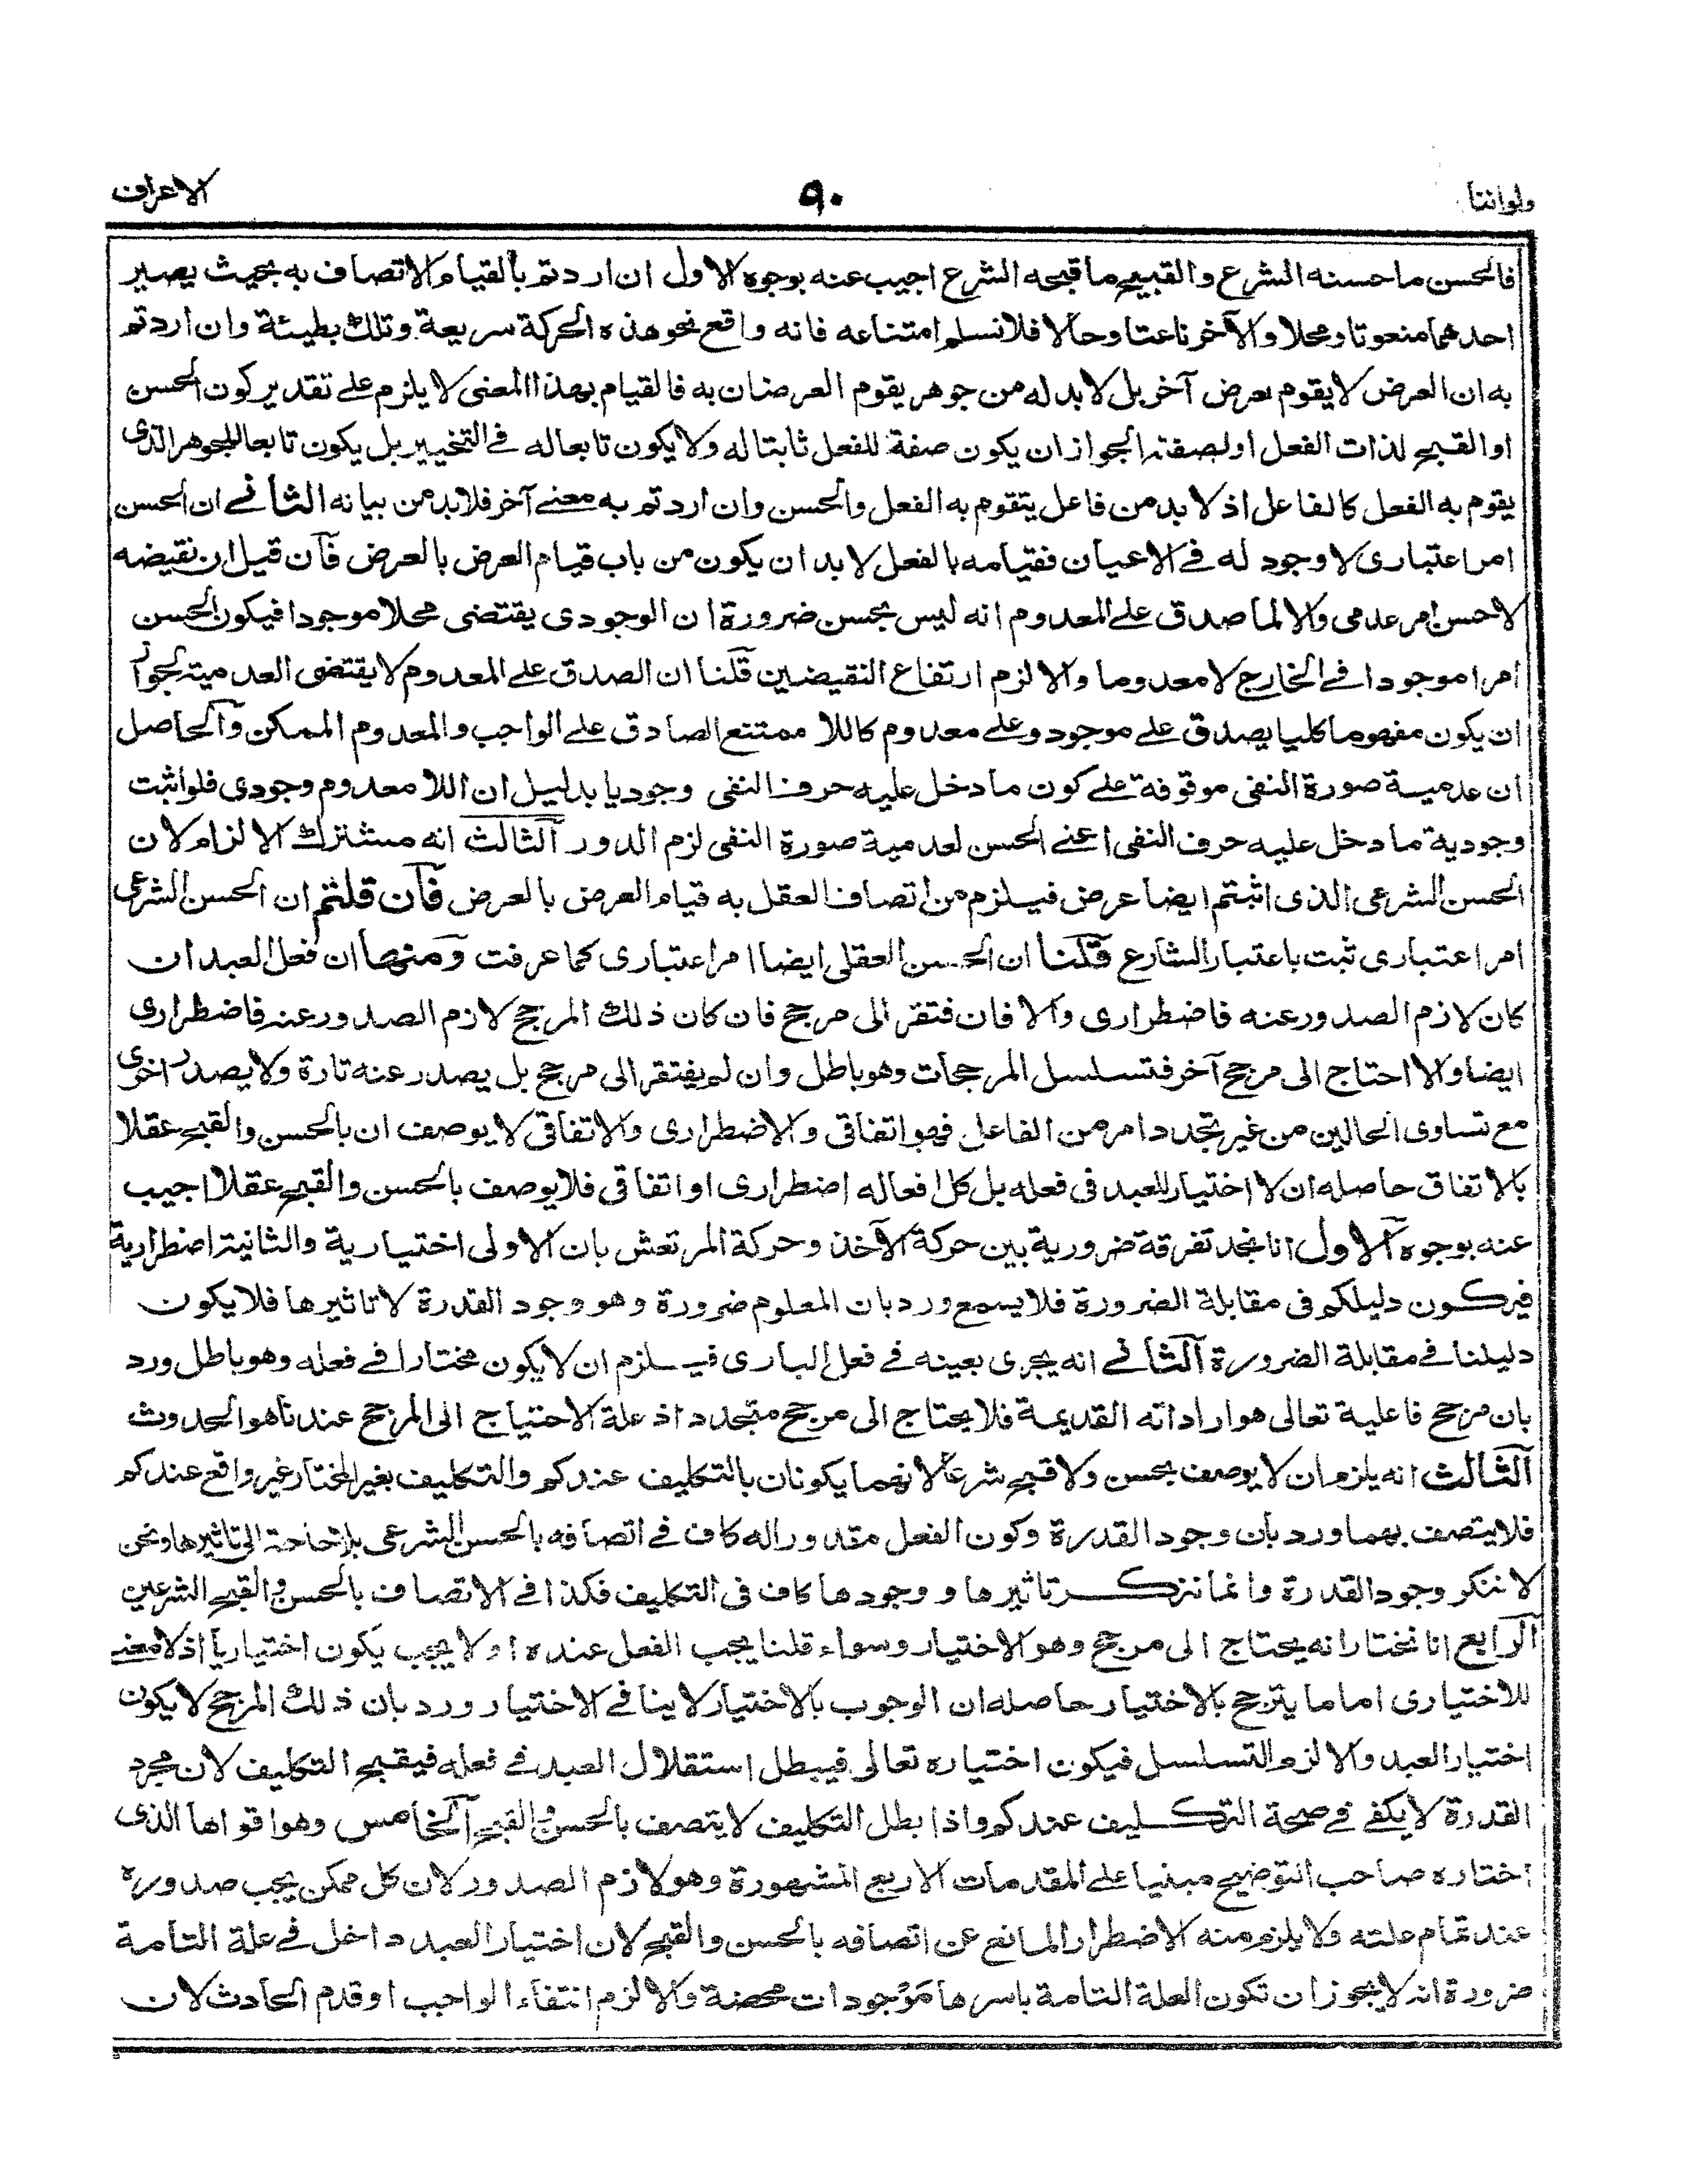 ولواننا ٩٠ الاعراف
فالحسن ما حسنه الشرع والقبيح ما قبحه الشرع اجيب عنه بوجوه الاول ان اردتم بالقيام الاتصاف به بحيث يصير
احدهما منعوتا ومحلا والآخر ناعتا وحالا فلا نسلم امتناعه فانه واقع نحو هذه الحركة سريعة وتلك بطيئة وان اردتم
به ان العرض لا يقوم بعرض آخر بل لا بد له من جوهر يقوم العرضان به فالقيام بهذا المعنى لا يلزم على تقدير كون الحسن
او القبح لذات الفعل او لصفته الجواز ان يكون صفة للفعل ثابتا له ولا يكون تابعا له في التخيير بل يكون تابعا للجوهر الذى
يقوم به الفعل كالفاعل اذ لا بد من فاعل يتقوم به الفعل والحسن وان اردتم به معنے آخر فلا بد من بيانه الثانے ان الحسن
امر اعتبارى لا وجود له فے الاعيان فقيامه بالفعل لا بد ان يكون من باب قيام العرض بالعرض فان قيل ان نقيضه
لا حسن امر عدمى والا لما صدق على المعدوم انه ليس بحسن ضرورة ان الوجودى يقتضى محلا موجودا فيكون الحسن
امرا موجودا فے الخارج لا معدوما والا لزم ارتفاع النقيضين قلنا ان الصدق على المعدوم لا يقتضى العدمية لجواز
ان يكون مفهوما كليا يصدق على موجود وعلى معدوم كاللا ممتنع الصادق على الواجب والمعدوم الممكن والحاصل
ان عدمية صورة النفى موقوفة على كون ما دخل عليه حرف النفى وجوديا بدليل ان اللا معدوم وجودى فلو اثبت
وجودية ما دخل عليه حرف النفى اعنے الحسن لعدمية صورة النفى لزم الدور الثالث انه مشترك الالزام لان
الحسن الشرعى الذى اثبتم ايضا عرض فيلزم من اتصاف العقل به قيام العرض بالعرض فان قلتم ان الحسن الشرعى
امر اعتبارى ثبت باعتبار الشارع قلنا ان الحسن العقلى ايضا امر اعتبارى كما عرفت ومنها ان فعل العبد ان
كان لازم الصدور عنه فاضطرارى والا فان فتقر الى مرجح فان كان ذلك المرجح لازم الصدور عنه فاضطرارى
ايضا والا احتاج الى مرجح آخر فتسلسل المرجحات وهو باطل وان لم يفتقر الى مرجح بل يصدر عنه تارة ولا يصدر اخرى
مع تساوى الحالين من غير تجدد امر من الفاعل فهو اتفاقى والاضطرارى والاتفاقى لا يوصفان بالحسن والقبح عقلا
بالاتفاق حاصله ان لا اختيار للعبد فى فعله بل كل افعاله اضطرارى او اتفاقى فلا يوصف بالحسن والقبح عقلا اجيب
عنه بوجوه الاول انا نجد تفرقة ضرورية بين حركة الآخذ وحركة المرتعش بان الاولى اختيارية والثانية اضطرارية
فيكون دليلكم فى مقابلة الضرورة فلا يسمع ورد بان المعلوم ضرورة وهو وجود القدرة لا تاثيرها فلا يكون
دليلنا فے مقابلة الضرورة الثانے انه يجرى بعينه فے فعل البارى فيلزم ان لا يكون مختارا فے فعله وهو باطل ورد
بان مرجح فاعلية تعالى هو اراداته القديمة فلا يحتاج الى مرجح متجدد اذ علة الاحتياج الى المرجح عندنا هو الحدوث
الثالث انه يلزم ان لا يوصف بحسن ولا قبح شرعا لانهما يكونان بالتكليف عندكم والتكليف بغير المختار غير واقع عندكم
فلا يتصف بهما ورد بان وجود القدرة وكون الفعل مقدورا له كاف فے اتصافه بالحسن الشرعى بلا حاجة الى تاثيرها ونحن
لا ننكر وجود القدرة وانما ننكر تاثيرها ووجودها كاف فى التكليف فكذا فے الاتصاف بالحسن والقبح الشرعين
الرابع انا نختار انه يحتاج الى مرجح وهو الاختيار وسواء قلنا يجب الفعل عنده او لا يجب يكون اختياريا اذ لا معنے
للاختيارى اما ما يترجح بالاختيار حاصله ان الوجوب بالاختيار لا ينافے الاختيار ورد بان ذلك المرجح لا يكون
اختيار العبد والا لزم التسلسل فيكون اختياره تعالى فيبطل استقلال العبد فے فعله فيقبح التكليف لان مجرد
القدرة لا يكفے فے صحة التكليف عندكم واذا بطل التكليف لا يتصف بالحسن والقبح الخامس وهو اقواها الذى
اختاره صاحب التوضيح مبنيا على المقدمات الاربع المشهورة وهو لازم الصدور لان كل ممكن يجب صدوره
عند تمام علته ولا يلزم منه الاضطرار المانع عن اتصافه بالحسن والقبح لان اختيار العبد داخل فے علة التامة
ضرورة انه لا يجوز ان تكون العلة التامة باسرها موجودات محضة والا لزم انتفاء الواجب او قدم الحادث لان